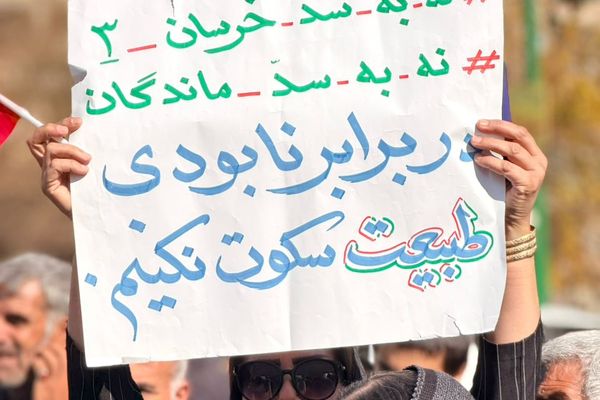 #نه_به_سد_خرسان_۳
#نه_به_سدّ_ماندگان
در برابر نابودی
طبیعت سکوت نکنیم.